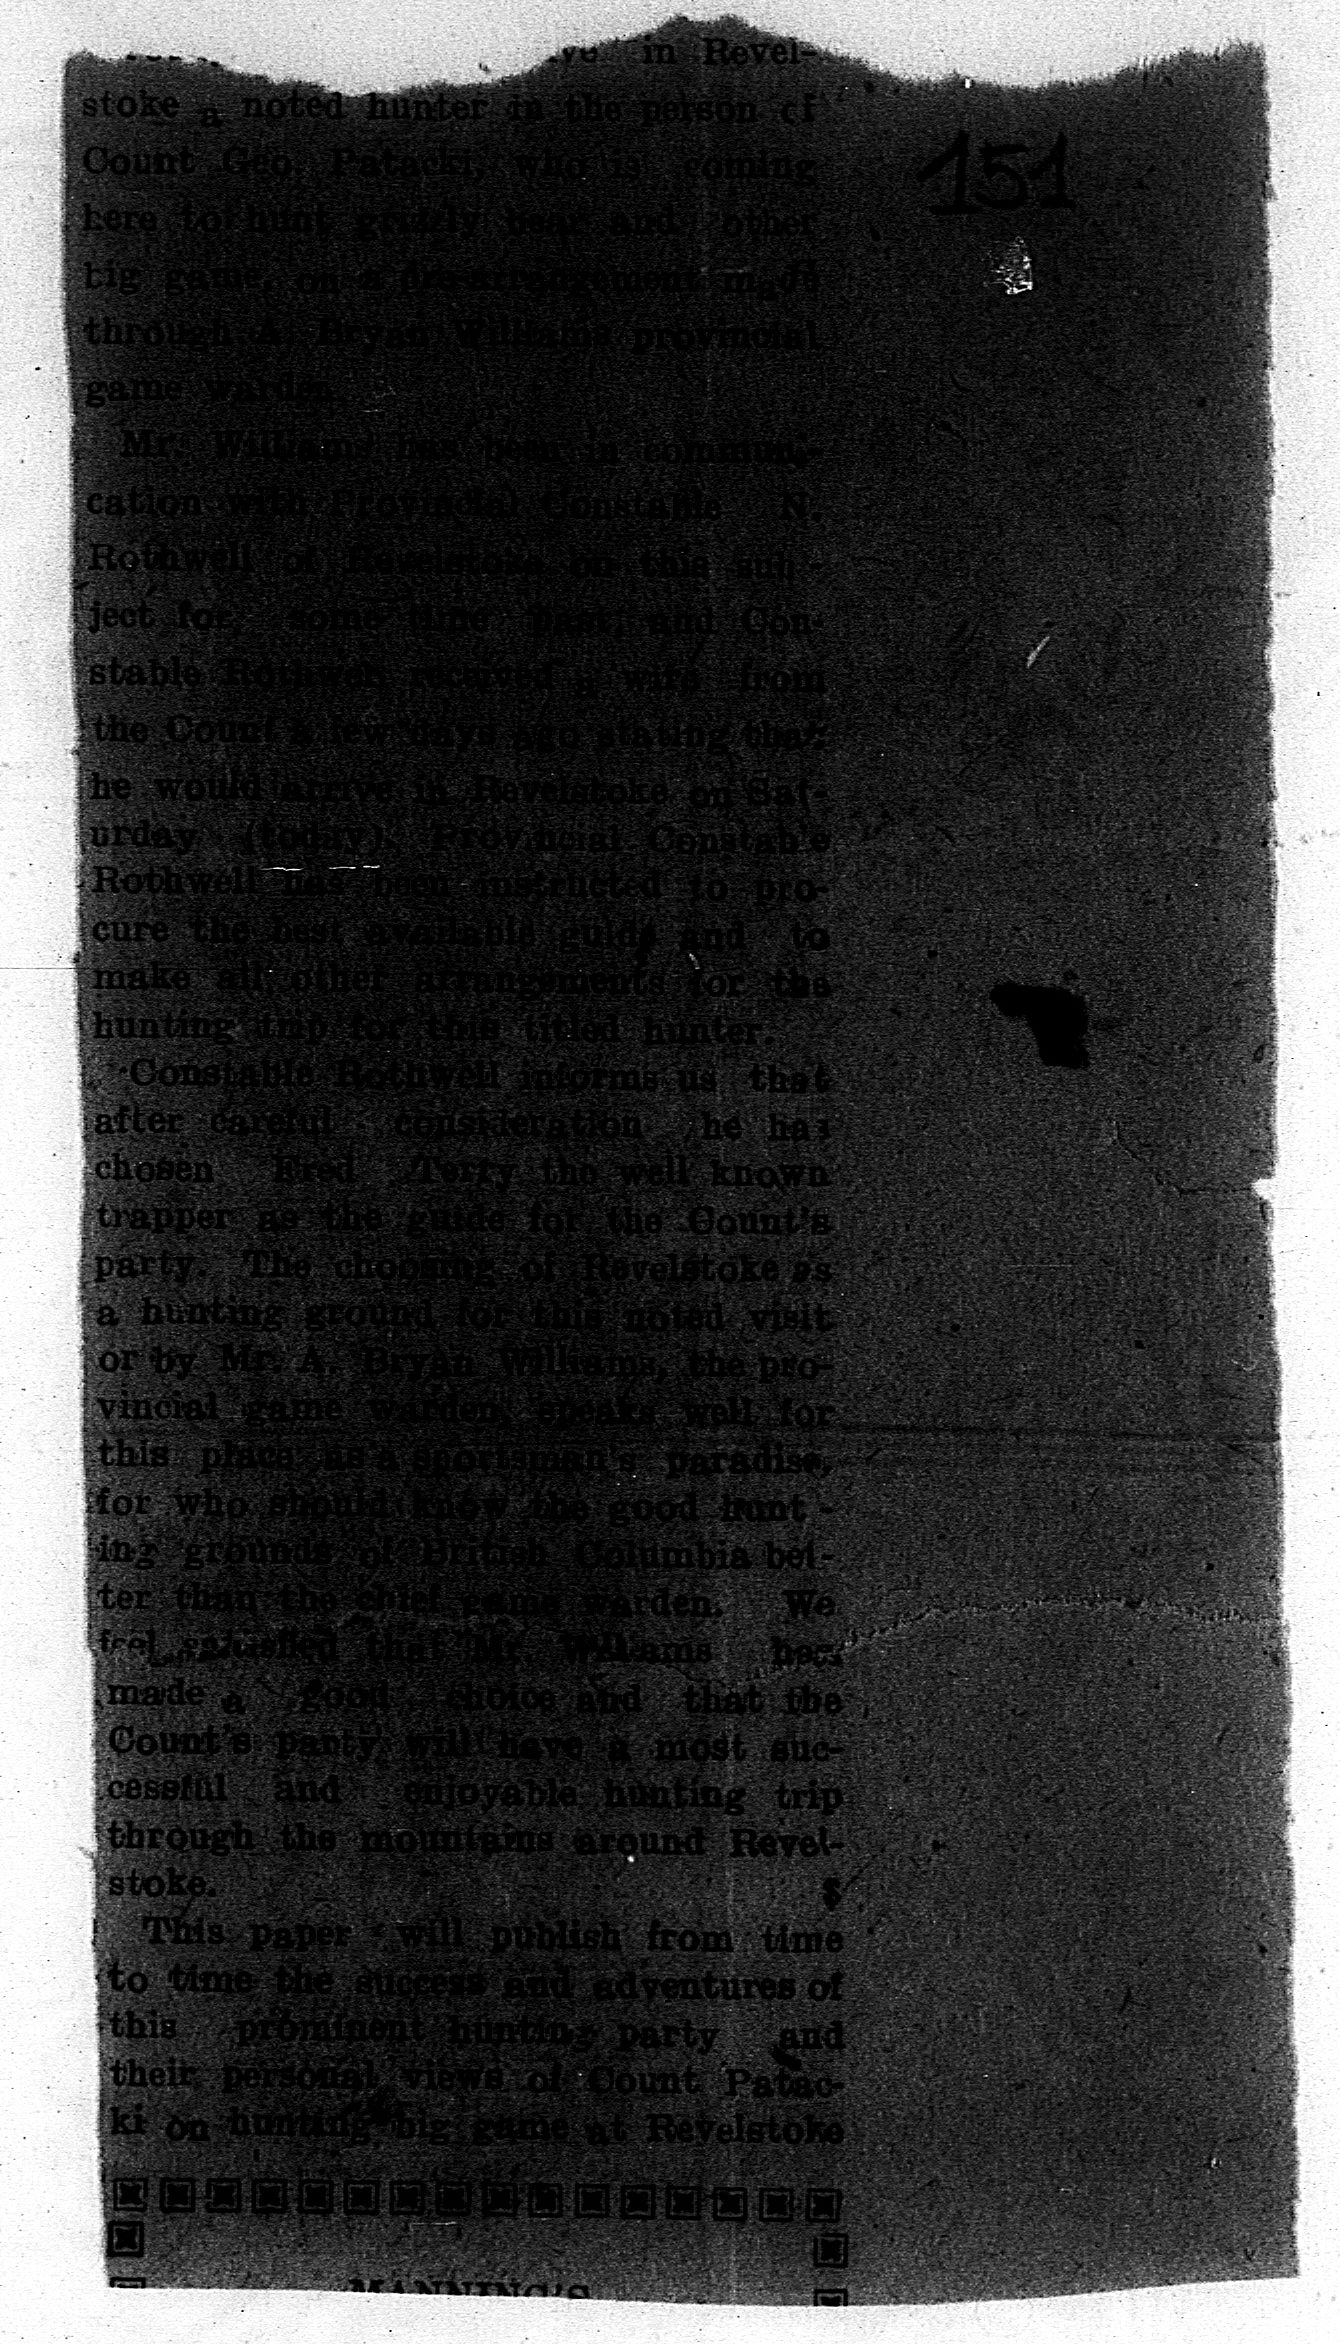 in Revel-
stoke a noted hunter in the person of
Count Geo. Patacki, who is coming
here to hunt grizzly bear and other
big game, on a pre-arrangement made
through A. Bryan Williams provincial
game warden.
Mr. Williams has been in communi-
cation with Provincial Constable N.
Rothwell of Revelstoke on this sub-
ject for some time past, and Con-
stable Rothwell received a wire from
the Count a few days ago stating that
he would arrive in Revelstoke on Sat-
urday (today). Provincial Constable
Rothwell has been instructed to pro-
cure the best available guide and to
make all other arrangements for the
hunting trip for this titled hunter.
Constable Rothwell informs us that
after careful consideration he has
chosen Fred Terry the well known
trapper as the guide for the Count's
party. The choosing of Revelstoke as
a hunting ground for this noted visit
or by Mr. A. Bryan Williams, the pro-
vincial game warden, speaks well for
this place as a sportsman's paradise,
for who should know the good hunt-
ing grounds of British Columbia bet-
ter than the chief game warden. We
feel satisfied that Mr. Williams has
made a good choice and that the
Count's party will have a most suc-
cessful and enjoyable hunting trip
through the mountains around Revel-
stoke. $
This paper will publish from time
to time the success and adventures of
this prominent hunting party and
their personal views of Count Patac-
ki on hunting big game at Revelstoke
MANNING'S
151